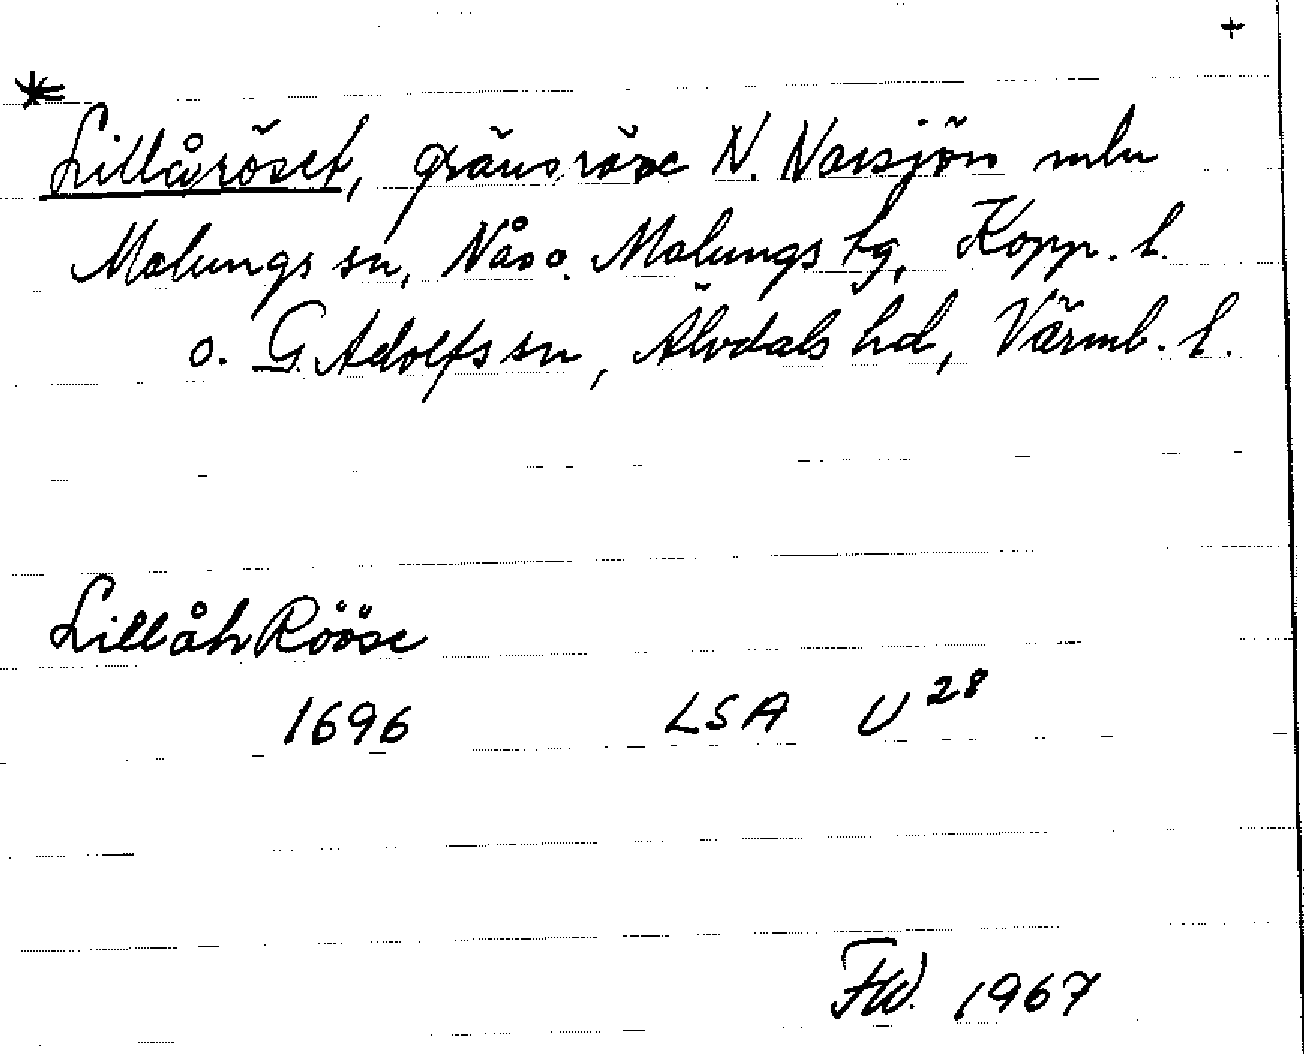 +
* Lillåröset, gränsröse N. Narsjön mln
Malungs sn, Nås o. Malungs tg, Kopp. l.
o. G. Adolfs sn, Älvdals hd, Värml. l.
Lillåh Rööse
1696 LSA U 28
FW. 1967